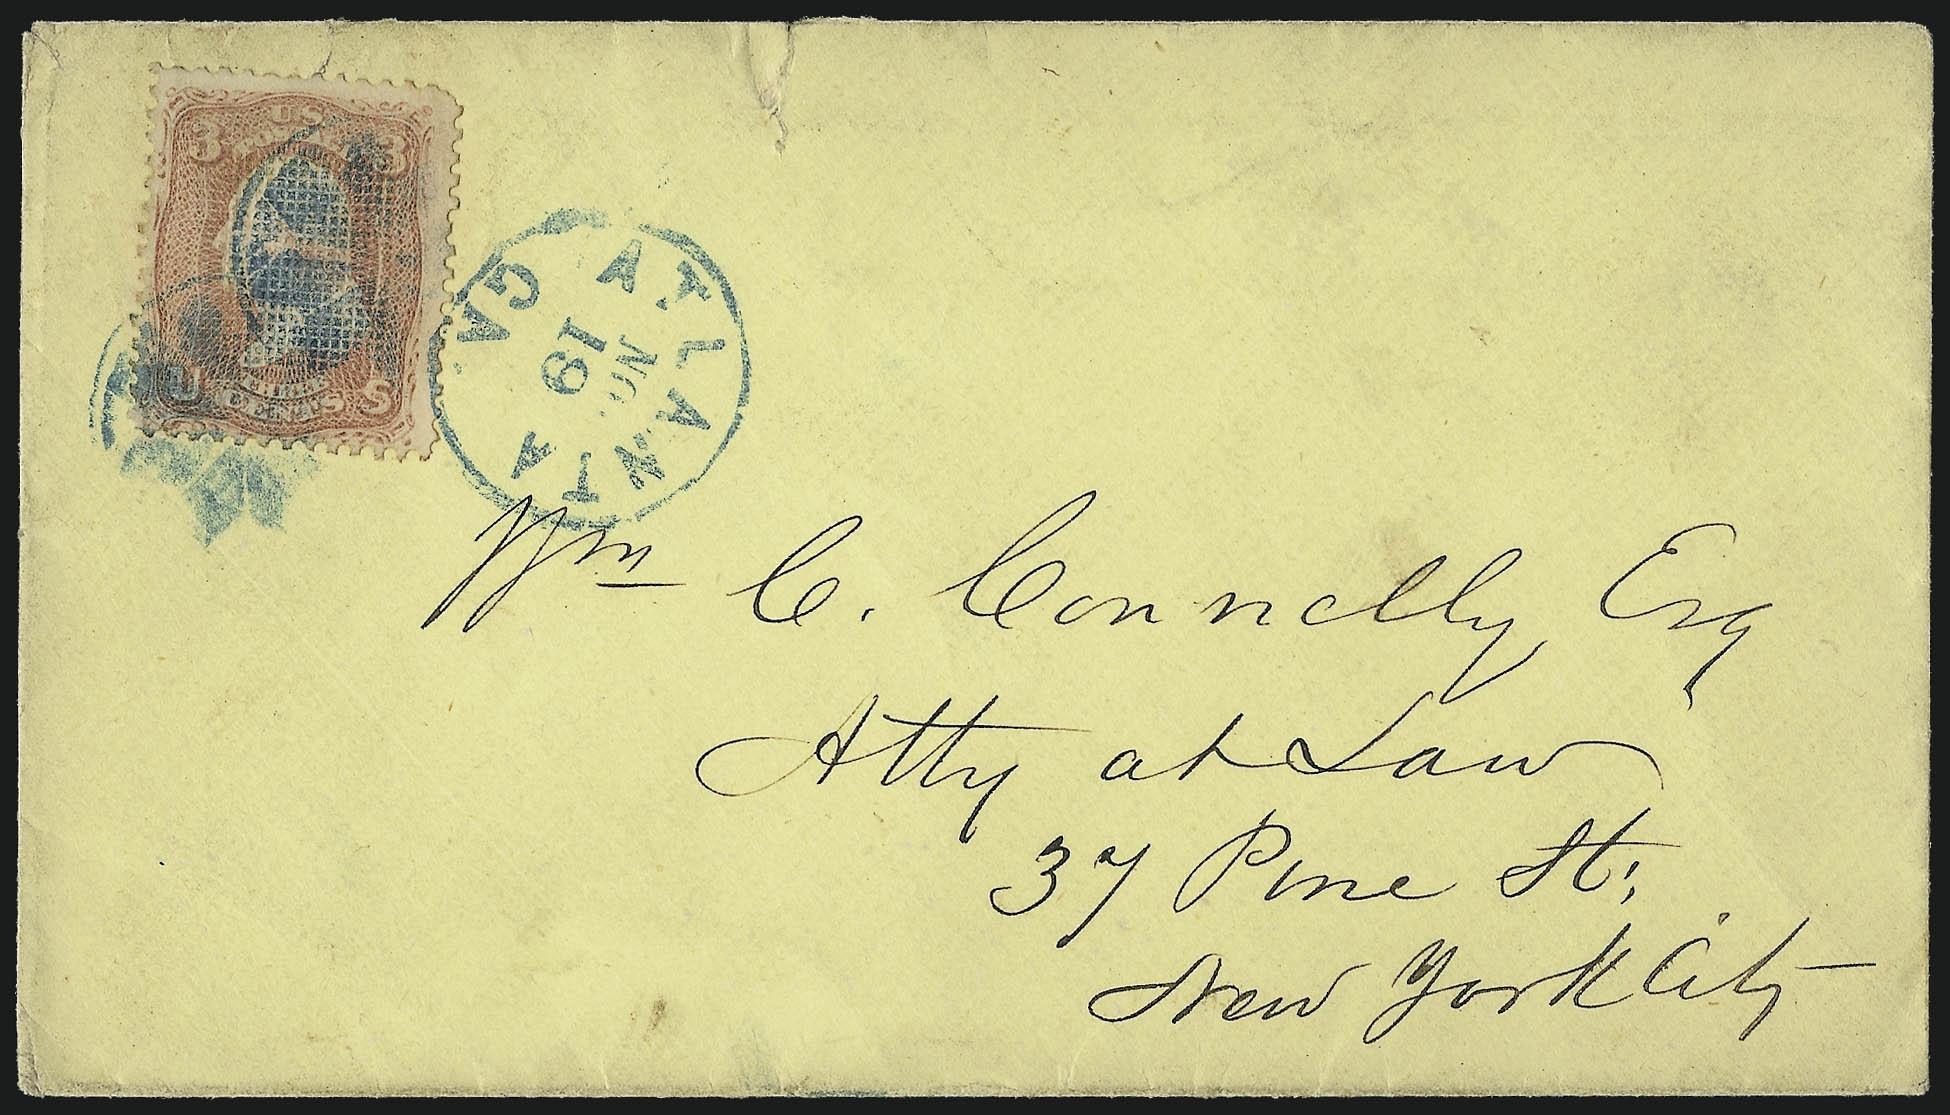 3 U.S. 3
U THREE CENTS S
ATLANTA GA.
NOV
19
Wm C. Connelly, Esq
Atty at Law
37 Pine St,
New York City